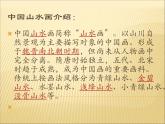 中国山水画介绍：
中国山水画简称“山水画”。以山川自
然景观为主要描写对象的中国画。形成
于魏晋南北朝时期，但尚未从人物画中
完全分离。隋唐时始独立，五代、北宋
时趋于成熟，成为中国画的重要画科。
传统上按画法风格分为青绿山水、金碧
山水、水墨山水、浅绛山水、小青绿山
水、没骨山水等。